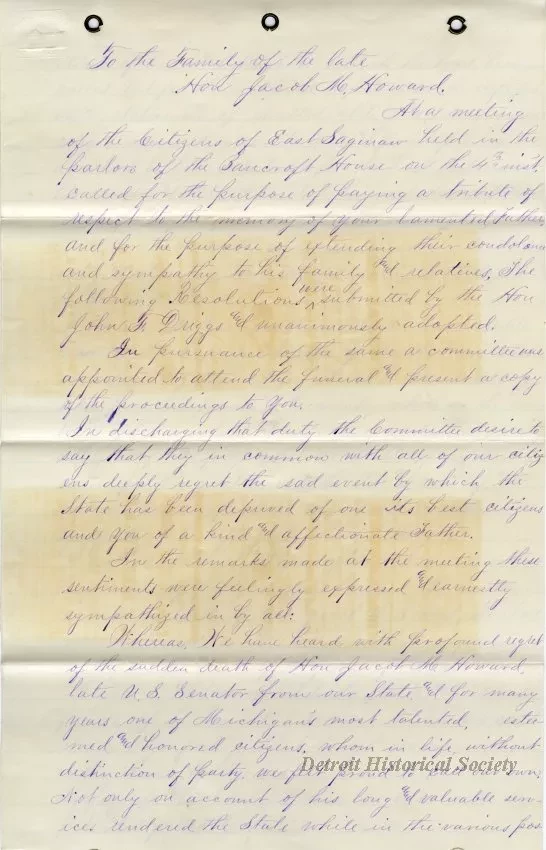 To the Family of the late
Hon Jacob M. Howard.
At a meeting
of the Citizens of East Saginaw held in the
parlors of the Bancroft House on the 4th inst.
called for the purpose of paying a tribute of
respect to the memory of your lamented Father,
and for the purpose of extending their condolence
and sympathy to his family and relatives. The
following Resolutions were submitted by the Hon
John F. Driggs and unanimously adopted.
In pursuance of the same a committee was
appointed to attend the funeral and present a copy
of the proceedings to You.
In discharging that duty the Committee desire to
say that they in common with all of our citiz
ens deeply regret the sad event by which the
State has been deprived of one its best citizens
and you of a kind and affectionate Father.
In the remarks made at the meeting these
sentiments were feelingly expressed and earnestly
sympathized in by all:
Whereas, We have heard with profound regret
of the sudden death of Hon Jacob M. Howard,
late U.S. Senator from our State and for many
years one of Michigan's most talented, estee
med and honored citizens, whom in life, without
distinction of party, we felt proud to call our own,
Not only on account of his long and valuable serv-
ices rendered the State while in the various pos
Detroit Historical Society